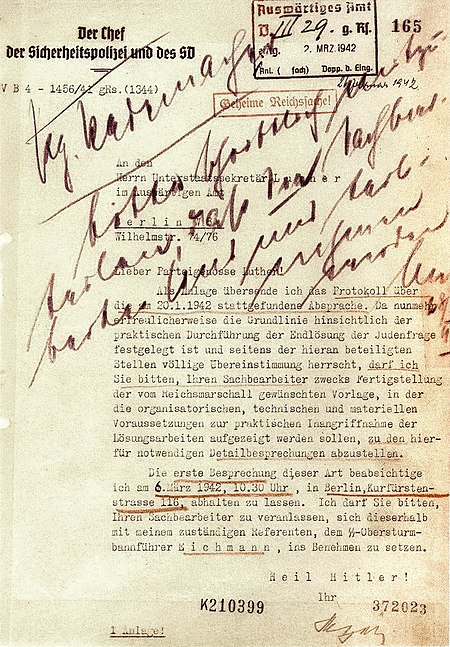 Der Chef
der Sicherheitspolizei und des SD
V B 4 - 1456/41 gRs. (1344)
Auswärtiges Amt
D III 29. g. Rs.
eing. 2. MRZ. 1942
Anl. ( fach) Dopp. d. Eing.
165
1942
Geheime Reichssache!
Pg. Rademacher
An den
Herrn Unterstaatssekretär L u t h e r
im Auswärtigen Amt
B e r l i n W 8
Wilhelmstr. 74/76
bitte
Lieber Parteigenosse Luther!
Als Anlage übersende ich das Protokoll über
die am 20.1.1942 stattgefundene Absprache. Da nunmehr
erfreulicherweise die Grundlinie hinsichtlich der
praktischen Durchführung der Endlösung der Judenfrage
festgelegt ist und seitens der hieran beteiligten
Stellen völlige Übereinstimmung herrscht, darf ich
Sie bitten, Ihren Sachbearbeiter zwecks Fertigstellung
der vom Reichsmarschall gewünschten Vorlage, in der
die organisatorischen, technischen und materiellen
Voraussetzungen zur praktischen Inangriffnahme der
Lösungsarbeiten aufgezeigt werden sollen, zu den hier-
für notwendigen Detailbesprechungen abzustellen.
Die erste Besprechung dieser Art beabsichtige
ich am 6. März 1942, 10.30 Uhr, in Berlin, Kurfürsten-
strasse 116, abhalten zu lassen. Ich darf Sie bitten,
Ihren Sachbearbeiter zu veranlassen, sich dieserhalb
mit meinem zuständigen Referenten, dem SS-Obersturm-
bannführer E i c h m a n n , ins Benehmen zu setzen.
H e i l H i t l e r !
Ihr
K210399
372023
1 Anlage!